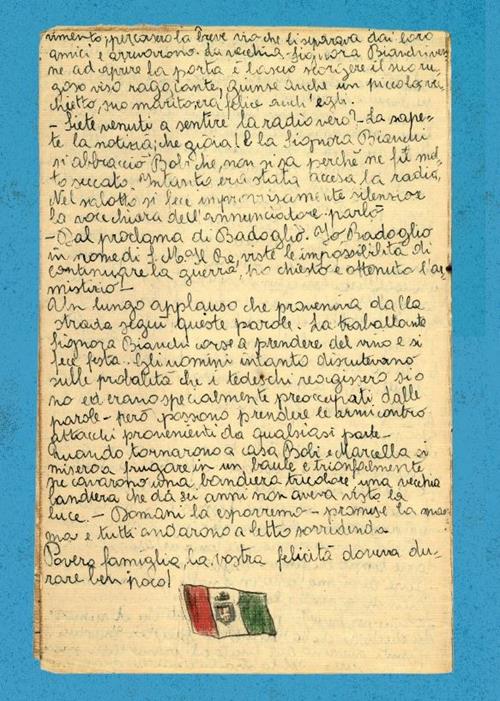 vimento, percorsero la breve via che li separava dai loro
amici e arrivarono. La vecchia Signora Bianchi ven
ne ad aprire la porta e lasciò scorgere il suo ru
goso viso raggiante, giunse anche un piccolo vec
chietto, suo marito era felice anch'egli.
- Siete venuti a sentire la radio vero? - La sape-
te la notizia, che gioia! E la Signora Bianchi
si abbracciò Bobi che, non si sa perché ne fu mol
to seccato. Intanto era stata accesa la radio,
Nel salotto si fece improvvisamente silenzio
la voce chiara dell'annunciatore parlò
- Dal proclama di Badoglio. Io Badoglio
in nome di S. M. il Re, viste le impossibilità di
continuare la guerra, ho chiesto e ottenuto l'ar
mistizio -
Un lungo applauso che proveniva dalla
strada seguì queste parole. La traballante
Signora Bianchi corse a prendere del vino e si
fece festa. Gli uomini intanto discutevano
sulle probabilità che i tedeschi reagissero sì o
no ed erano specialmente preoccupati dalle
parole - però, possono prendere le armi contro
attacchi provenienti da qualsiasi parte -
Quando tornarono a casa Bobi e Marcella si
misero a frugare in un baule e trionfalmente
ne cavarono una bandiera tricolore, una vecchia
bandiera che da sei anni non aveva visto la
luce. - Domani la esporremo - promise la mam
ma e tutti andarono a letto sorridendo
Povera famiglia, la vostra felicità doveva du-
rare ben poco!